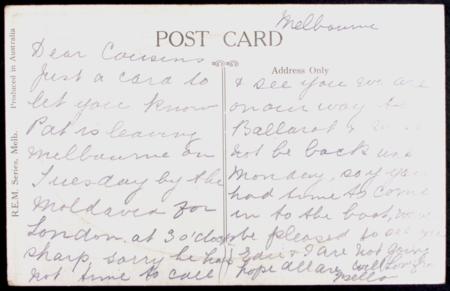 Melbourne
POST CARD
Address Only
R.E.M. Series, Melb. Produced in Australia
Dear Cousins
Just a card to
let you know
Pat is leaving
Melbourne on
Tuesday by the
Moldavia for
London at 3 o'clock
sharp, sorry he has
not time to call
& see you we are
on our way to
Ballarat &
not be back
Monday, so if you
had time to come
in to the boat,
be pleased to see you
& I are not going
hope all are well Love from